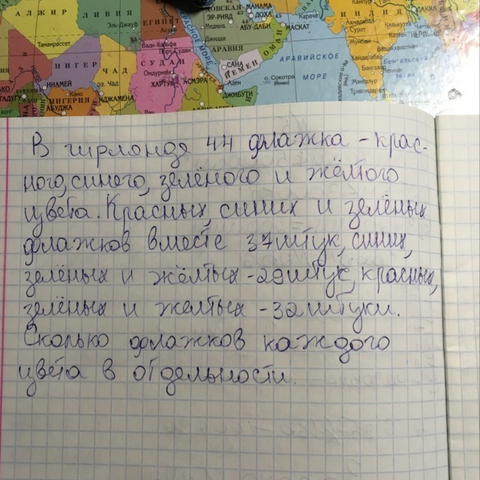 АЛЖИР
ЛИВИЯ
ЕГИПЕТ
Эр-РИЯД
МАНАМА
ДОХА
АБУ-ДАБИ
МАСКАТ
АРАВИЯ
ОМАН
КРАСНОЕ МОРЕ
САНА
ЙЕМЕН
АРАВИЙСКОЕ
МОРЕ
НИГЕР
ЧАД
СУДАН
ХАРТУМ
АСМЭРА
ДЖИБУТИ
НИАМЕЙ
АБУДЖА
НДЖАМЕНА
ИНДИЯ
В гирлонде 44 флажка - крас-
ного, синего, зелёного и жёлтого
цвета. Красных, синих и зелёных
флажков вместе 37 штук, синих,
зелёных и жёлтых - 29 штук, красных,
зелёных и желтых - 32 штуки.
Сколько флажков каждого
цвета в отдельности.